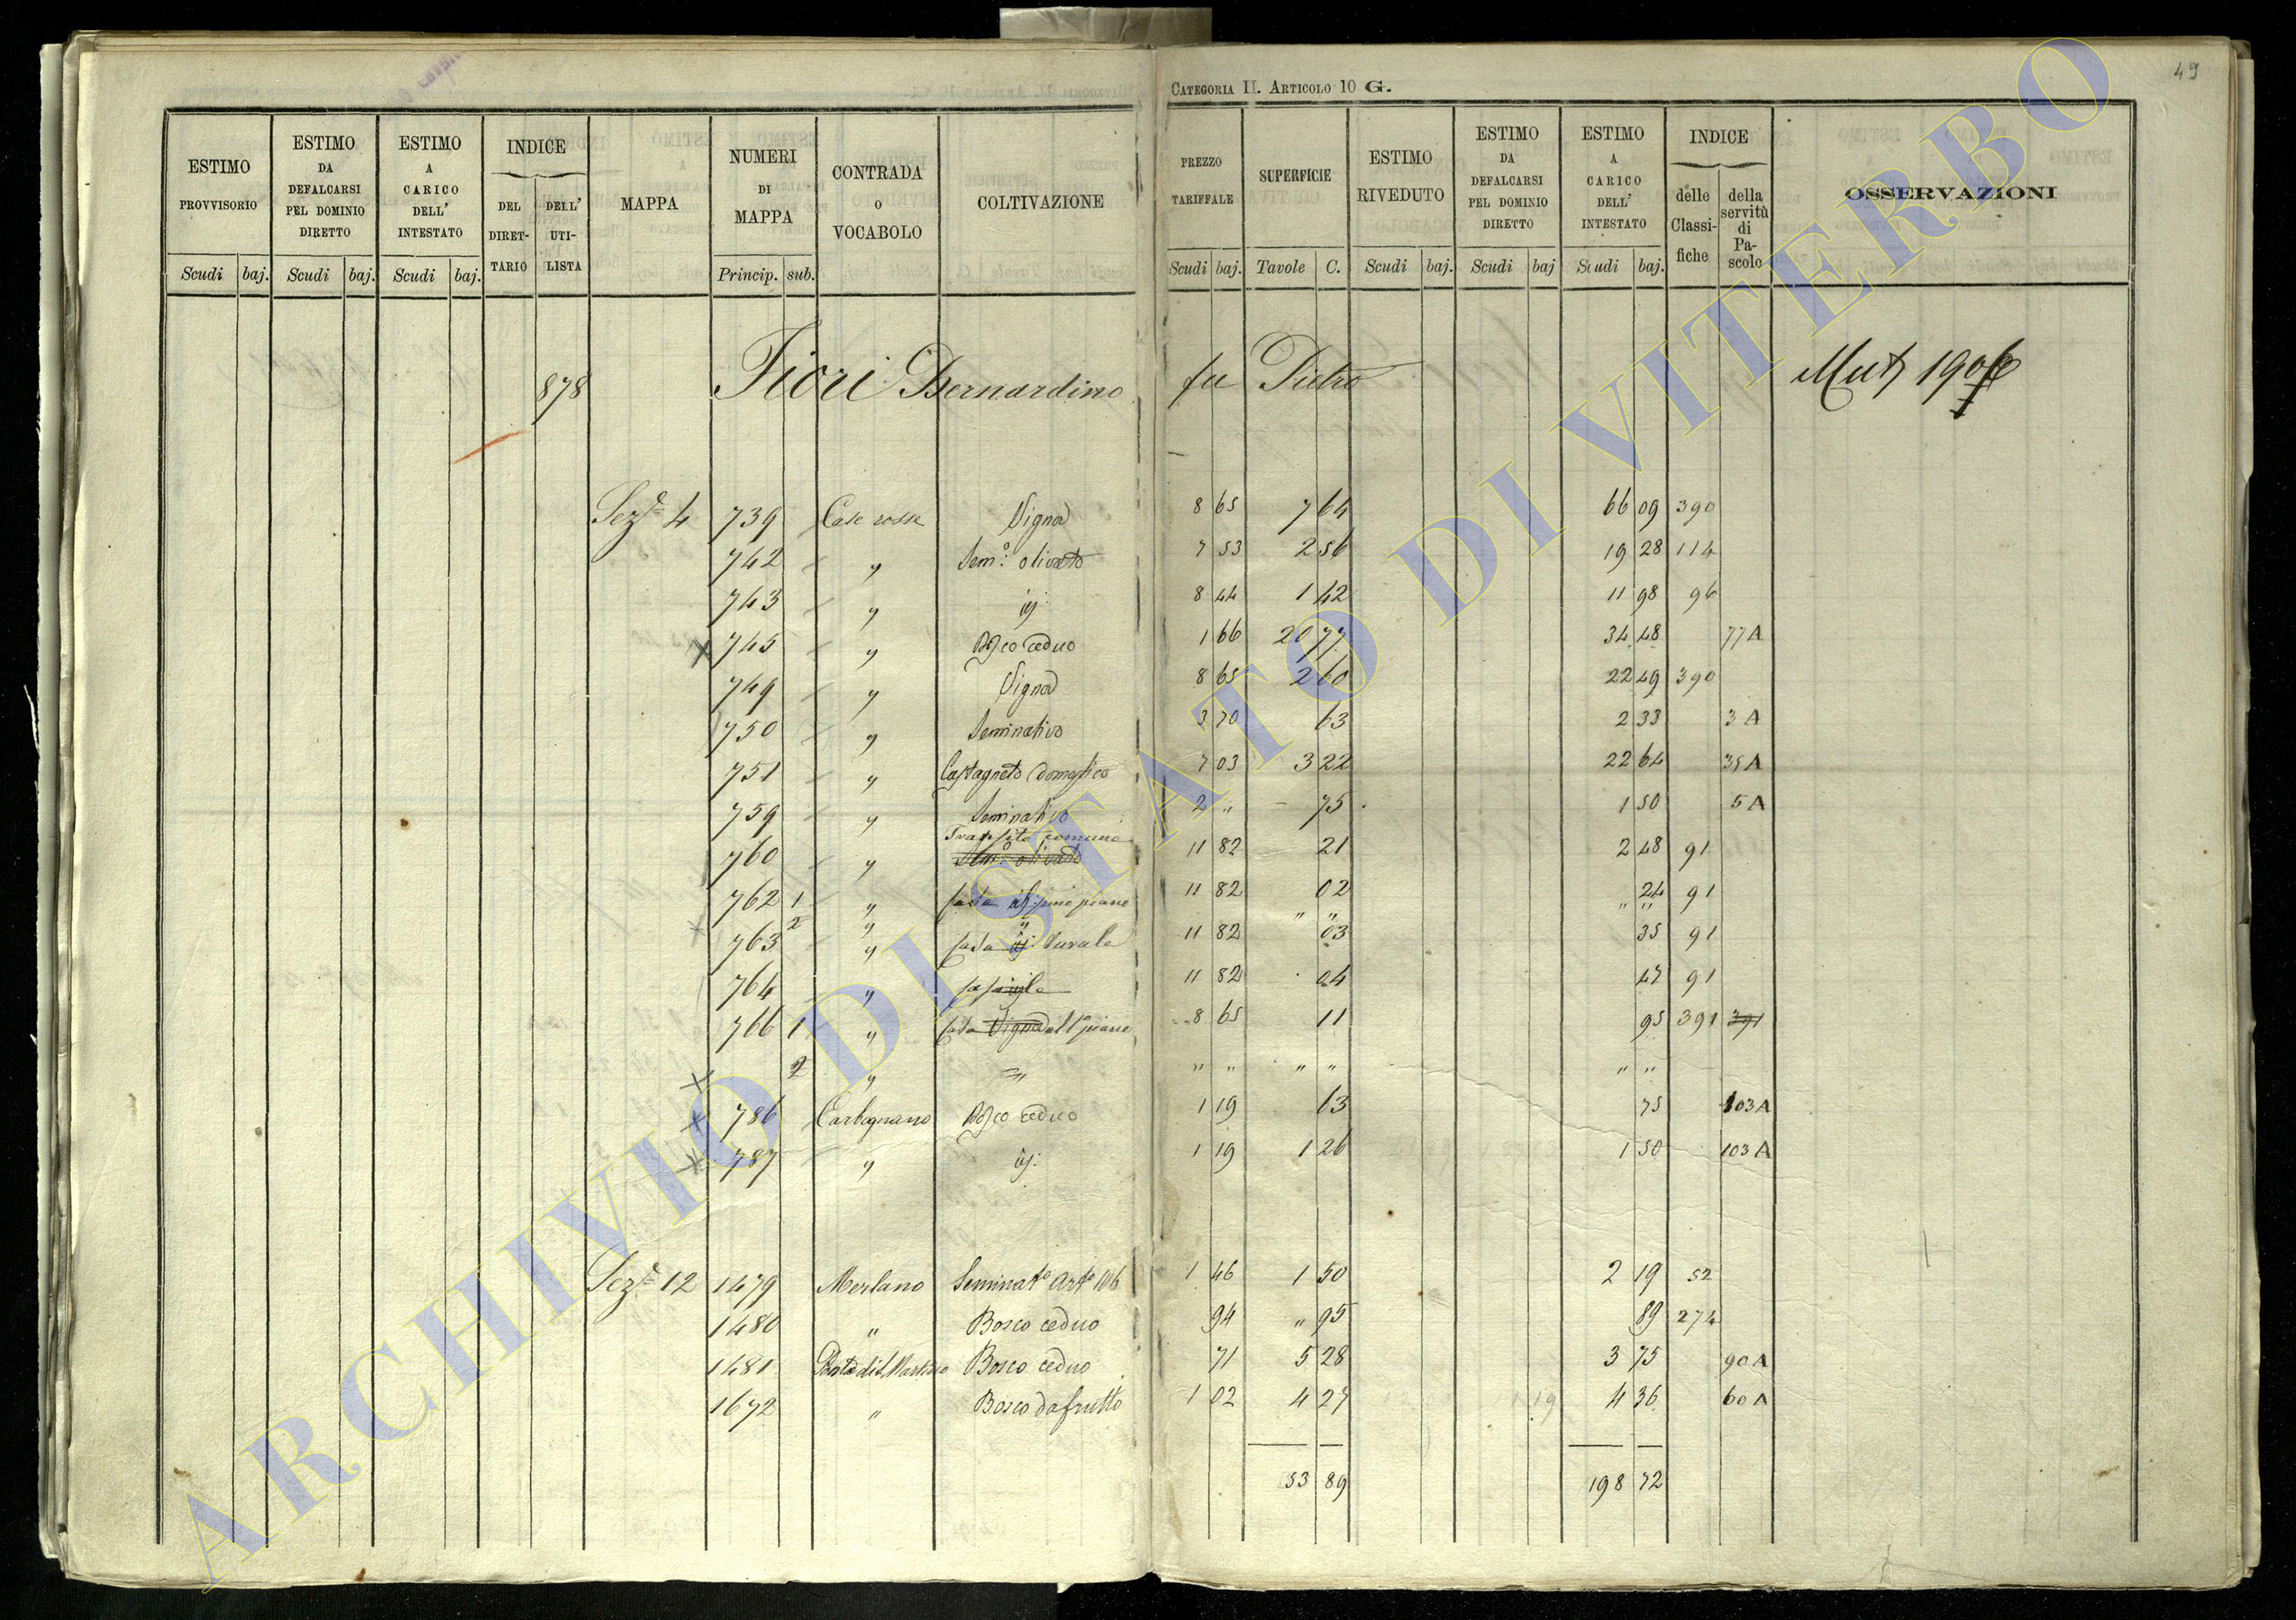 CATEGORIA II. ARTICOLO 10 G.
49
ESTIMO PROVVISORIO Scudi baj.
ESTIMO DA DEFALCARSI PEL DOMINIO DIRETTO Scudi baj.
ESTIMO A CARICO DELL' INTESTATO Scudi baj.
INDICE DEL DIRET-TARIO DELL' UTI-LISTA
MAPPA
NUMERI DI MAPPA Princip. sub.
CONTRADA O VOCABOLO
COLTIVAZIONE
PREZZO TARIFFALE Scudi baj.
SUPERFICIE Tavole C.
ESTIMO RIVEDUTO Scudi baj.
ESTIMO DA DEFALCARSI PEL DOMINIO DIRETTO Scudi baj
ESTIMO A CARICO DELL' INTESTATO Scudi baj.
INDICE delle Classi-fiche della servitù di Pa-scolo
OSSERVAZIONI
878 Fiori Bernardino fu Pietro
Sez.e 4 739 Case rosse Vigna 8 65 7 64 66 09 390
742 " Sem.o olivato 7 53 2 56 19 28 114
743 " id. 8 44 1 42 11 98 96
x 745 " Bosco ceduo 1 66 20 77 34 48 77 A
749 " Vigna 8 65 2 60 22 49 390
750 " Seminativo 3 70 63 2 33 3 A
751 " Castagneto domestico 7 03 3 22 22 64 35 A
759 " Seminativo 2 " 75 1 50 5 A
Transito comune
760 " Sem.o olivato 11 82 21 2 48 91
762 1 " casa piane 11 82 02 " 24 91
2 " " " " " "
763 " casa id. rurale 11 82 03 35 91
764 " 11 82 04 47 91
766 1 " casa Vigna piane 8 65 11 95 391 391
x 2 " " " " " " " "
x 786 Carbognano Bosco ceduo 1 19 63 75 103 A
x 787 " id. 1 19 1 26 1 50 103 A
Sez.e 12 1479 Merlano Seminat.o Art.o 106 1 46 1 50 2 19 52
1480 " Bosco ceduo 94 " 95 89 274
1481 Bosco ceduo 71 5 28 3 75 90 A
1672 " Bosco da frutto 1 02 4 27 4 36 60 A
53 89 198 72
ARCHIVIO DI STATO DI VITERBO